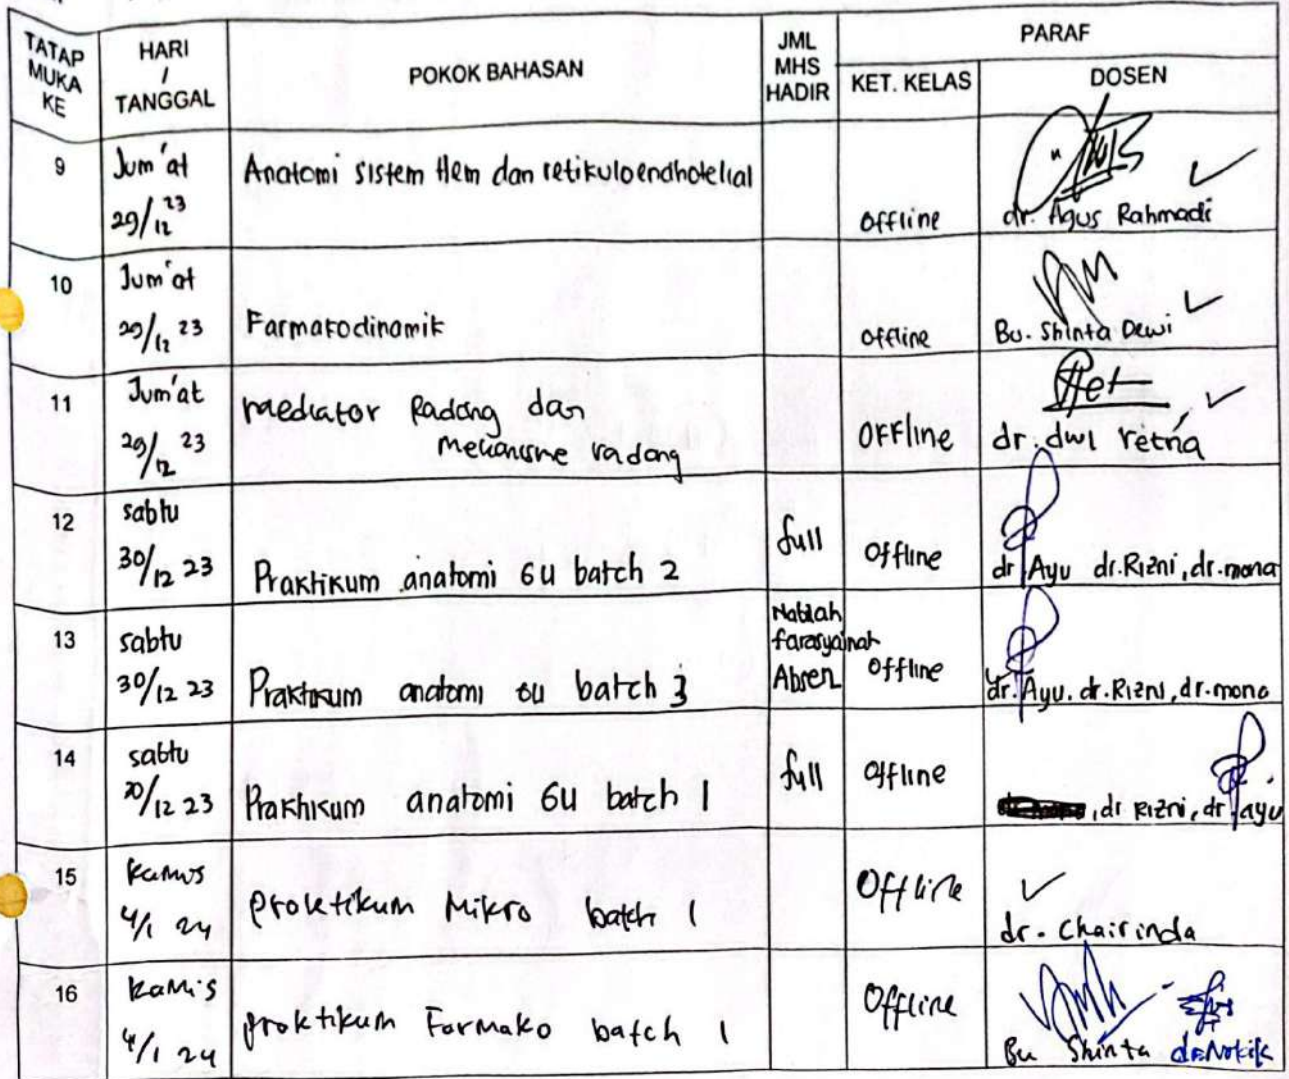 TATAP MUKA KE
HARI / TANGGAL
POKOK BAHASAN
JML MHS HADIR
PARAF
KET. KELAS
DOSEN
9
Jum'at
29/12 23
Anatomi sistem Hem dan retikuloendhotelial
offline
dr. Agus Rahmadi
10
Jum'at
29/12 23
Farmakodinamik
offline
Bu. Shinta Dewi
11
Jum'at
29/12 23
mediator Radang dan
mekanisme radang
OFFline
dr. dwi retna
12
sabtu
30/12 23
Praktikum anatomi 6U batch 2
full
offline
dr Ayu dr.Rizni, dr.mona
13
sabtu
30/12 23
Praktikum anatomi 6U batch 3
Nablah
farasyainah
Absen
offline
dr. Ayu. dr.Rizni, dr.mona
14
sabtu
30/12 23
Praktikum anatomi 6U batch 1
full
offline
, dr Rizni, dr ayu
15
kamis
4/1 24
praktikum Mikro batch 1
Offline
dr. Chairinda
16
kamis
4/1 24
praktikum Farmako batch 1
Offline
Bu Shinta